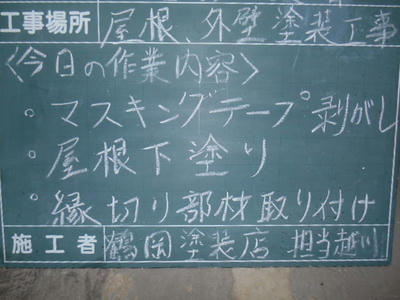 工事場所 屋根、外壁塗装工事
〈今日の作業内容〉
。マスキングテープ剥がし
。屋根下塗り
。縁切り部材取り付け
施工者 鶴岡塗装店 担当越川